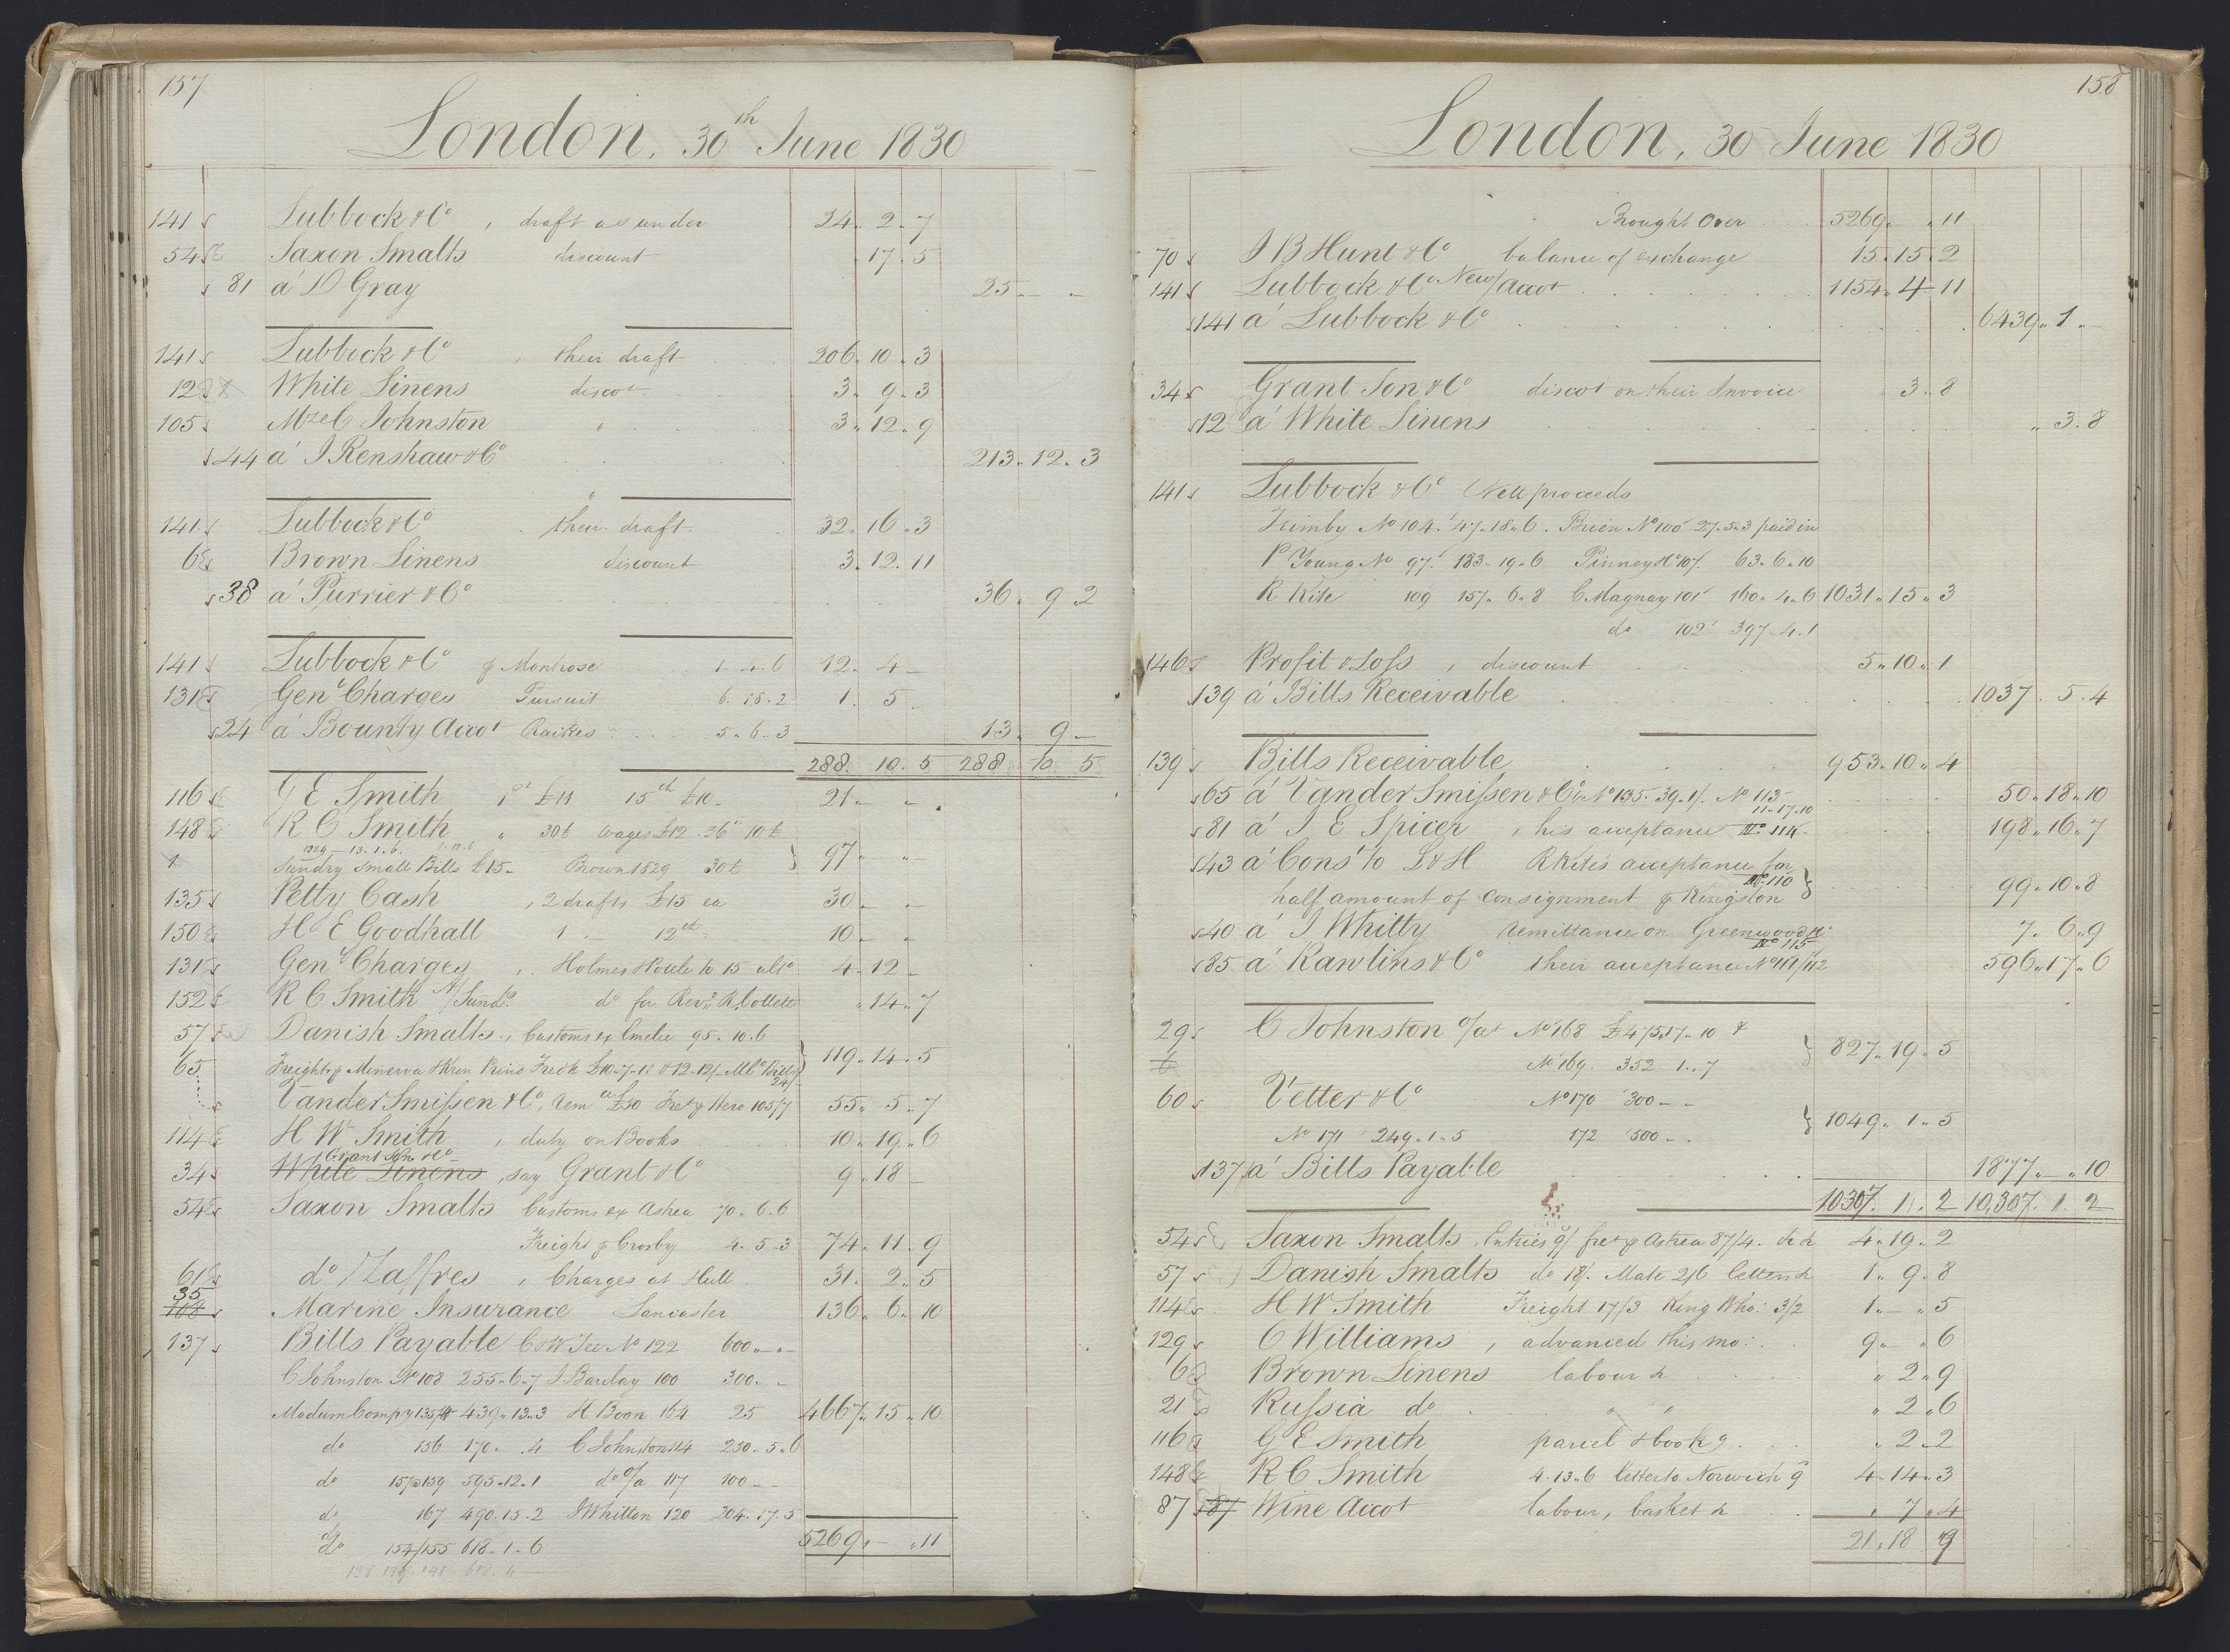 157
London, 30th June 1830
141 Lubbock & Co , draft as under 24. 2. 7
54 Saxon Smalts discount . 17. 5
81 a' D Gray 25 — „
141 Lubbock & Co , their draft 206. 10. 3
12 White Linens discot 3. 9. 3
105 C Johnston " 3. 12. 9
44 a' J Renshaw & Co 213. 12. 3
141 Lubbock & Co their draft 32. 16. 3
6 Brown Linens discount 3. 12. 11
38 a' Purrier & Co 36. 9. 2
141 Lubbock & Co p Montrose 1. 4. 6 12. 4 –
131 Genl Charges Pursuit 6. 18. 2 1. 5.
24 a' Bounty Accot Raikes 5. 6. 3 13. 9 –
288. 10. 5 288 10 5
116 G E Smith 1st £11 15th £10 – 21. – .
148 R C Smith „ 30£ wages £12. 36£ 10£
1829 – 13. 1. 6.
Sundry Small Bills £15 – Brown 1829 30£ } 97 „ „
135 Petty Cash , 2 drafts £15 ea 30 – „
150 H E Goodhall 1 – 12th 10 – „
131 Genl Charges , Holmes Hottle to 15 ulto 4. 12 –
152 R C Smith A/Sunds do for Revd R Collett „ 14. 7
57 Danish Smalts., Customs ex Emelie 95. 10. 6
65 Freight p Minerva & Kron Prins Fredk £10. 7. 11 & 12. 12/– Bills 24/– } 119. 14. 5
Vander Smissen & Co, £50 Fret p Hero 105/7 55. 5. 7
114 H W Smith , duty on Books 10. 19. 6
Grant Son & Co
34 White Linens, say Grant & Co 9. 18 –
54 Saxon Smalts Customs ex Astrea 70. 6. 6
Freight p Crosby 4. 5. 3 74. 11. 9
61 do / Zaffres , Charges at Hull 31. 2. 5
35
108 Marine Insurance Lancaster 136. 6. 10
137 Bills Payable C & W Lee No 122 600 „ – „ –
C Johnston No 108 255. 6. 7 J Barclay 100 300. –
Modum Compy 135/4 439. 13. 3 H Boon 164 25 4667. 15. 10
do 156 170 – . 4 C Johnston 114 250. 5. 6
do 157/159 595. 12. 1 do o/a 117 100 – –
do 167 490. 15. 2 J Whitton 120 204. 17. 5
do 154/155 618. 1. 6 5269. – . 11
158
London, 30 June 1830
Brought Over 5269. „ 11
70 J B Hunt & Co balance of exchange 15. 15. 2
141 Lubbock & Co New/Accot 1154. 4. 11
141 a' Lubbock & Co 6439. 1. –
34 Grant Son & Co discot on their Invoice . 3. 8
12 a' White Linens „ 3. 8
141 Lubbock & Co Nett proceeds
No 104. 47. 18. 6. No 105 27. 5. 3 paid in
P Young No 97. 183. 19. 6 Pinney & Co 107. 63. 6. 10
R Kite 109 157. 6. 8 C Magnay 101 160. 4. 6 1031. 15. 3
do 102 397. 4. 1
146 Profit & Loss , discount 5. 10. 1
139 a' Bills Receivable 1037. 5. 4
139 Bills Receivable 953. 10. 4
65 a' Vander Smissen & Co No 135. 39. 1/. No 113 11. 17. 10 50. 18. 10
81 a' J E Spicer , his acceptance No 114. 198. 16. 7
43 a' Const to L & H R Kites acceptance for
half amount of consignment p Kingston No 110 } 99. 10. 8
40 a' J Whitty remittance on Greenwood & Co No 115 7. 6. 9
85 a' Rawlins & Co their acceptance No 111/112 596. 17. 6
29 C Johnston o/at No 168 £475. 17. 10 &
6 No 169. 352 1. 7 } 827. 19. 5
60 Vetter & Co No 170 300 – –
No 171 249. 1. 5 172 500 – . } 1049. 1. 5
137 a' Bills Payable 1877. – . 10
10307. 1. 2 10,307. 1. 2
54 Saxon Smalts Entries 9/ fret p Astrea 87/4. 4. 19. 2
57 Danish Smalts do 18/. Mate 2/6 letters & 1. 9. 8
114 H W Smith Freight 17/3 King Who: 3/2 1. – . 5
129 C Williams , advanced this mo: 9. – . 6
6 Brown Linens labour & „ 2. 9
21 Russia do " " „ 2. 6
116 G E Smith parcel & books . 2. 2
148 R C Smith 4. 13. 6 letter to Norwich 9 4. 14. 3
87 87 Wine Accot labour, basket & . 7. 4
21. 18. 9